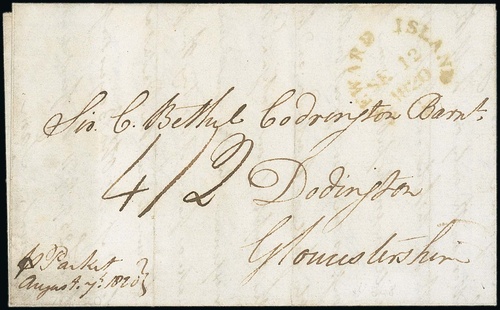 WARD ISLAND
SE 12
1820
Sir. C. Bethel Codrington Barnt.
4/2 Dodington
Gloucestershire
p Packet
August. 7th 1820